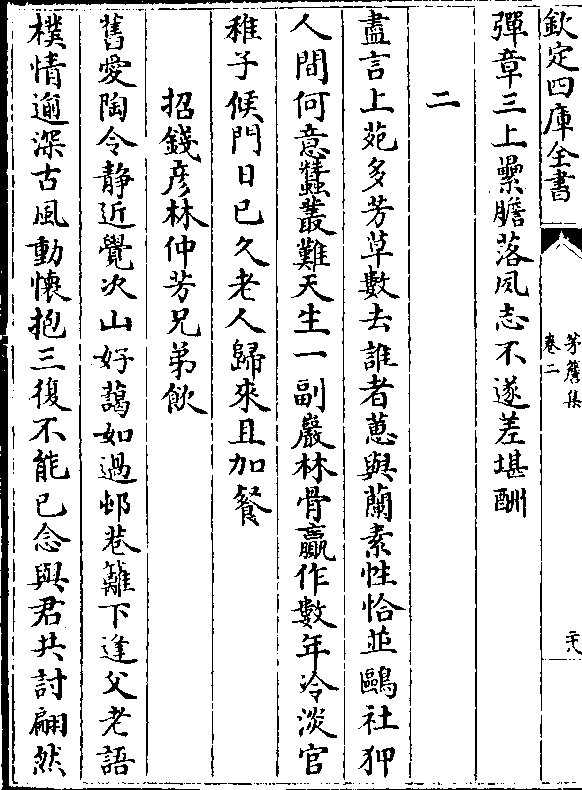 欽定四庫全書
茅簷集
卷二
彈章三上纍膽落夙志不遂差堪酬
二
盡言上苑多芳草數去誰者蕙與蘭素性恰並鷗社狎
人間何意蠶叢難天生一副巖林骨贏作數年冷淡官
稚子候門日已久老人歸來且加餐
招錢彦林仲芳兄弟飲
舊愛陶令静近覺次山好藹如過邨巷籬下逢父老語
樸情逾深古風動懷抱三復不能已念與君共討翩然